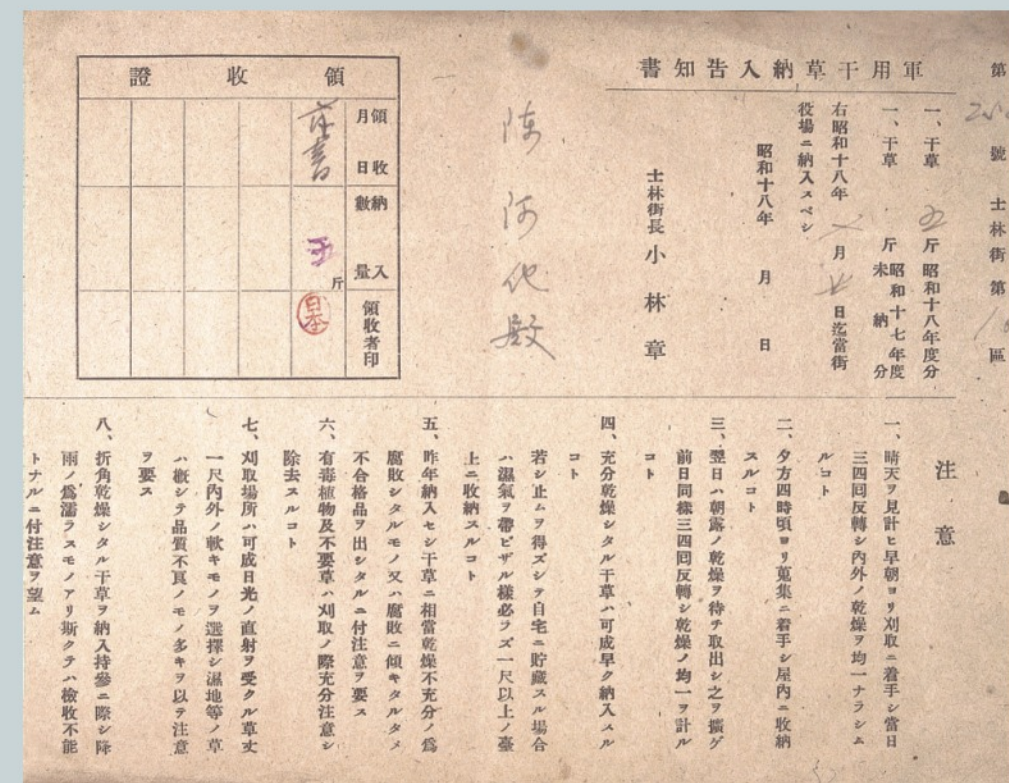 第 號 士林街第 區
軍用干草納入告知書
一、干草 五斤 昭和十八年度分
一、干草 斤 昭和十七年度未納分
右昭和十八年 月 日迄當街
役場ニ納入スベシ
昭和十八年 月 日
士林街長 小林章
陳阿 殿
領收證
領收月日
納入數量
領收者印
五斤
注意
一、晴天ヲ見計ヒ早朝ヨリ刈取ニ着手シ當日
三四回反轉シ內外ノ乾燥ヲ均一ナラシム
ルコト
二、夕方四時頃ヨリ蒐集ニ着手シ屋內ニ收納
スルコト
三、翌日ハ朝露ノ乾燥ヲ待チ取出シ之ヲ擴ゲ
前日同樣三四回反轉シ乾燥ノ均一ヲ計ル
コト
四、充分乾燥シタル干草ハ可成早ク納入スル
コト
若シ止ムヲ得ズシテ自宅ニ貯藏スル場合
ハ濕氣ヲ帶ビザル樣必ラズ一尺以上ノ臺
上ニ收納スルコト
五、昨年納入セシ干草ニ相當乾燥不充分ノ爲
腐敗シタルモノ又ハ腐敗ニ傾キタルタメ
不合格品ヲ出シタルニ付注意ヲ要ス
六、有毒植物及不要草ハ刈取ノ際充分注意シ
除去スルコト
七、刈取場所ハ可成日光ノ直射ヲ受クル草丈
一尺內外ノ軟キモノヲ選擇シ濕地等ノ草
ハ槪シテ品質不良ノモノ多キヲ以テ注意
ヲ要ス
八、折角乾燥シタル干草ヲ納入持參ニ際シ降
雨ノ爲濡ラスモノアリ斯クテハ檢收不能
トナルニ付注意ヲ望ム